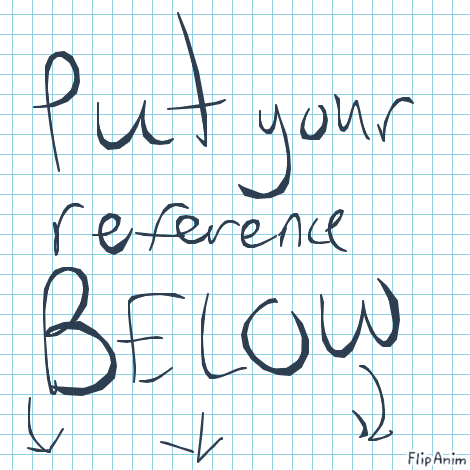 Put your
reference
BELOW
FlipAnim